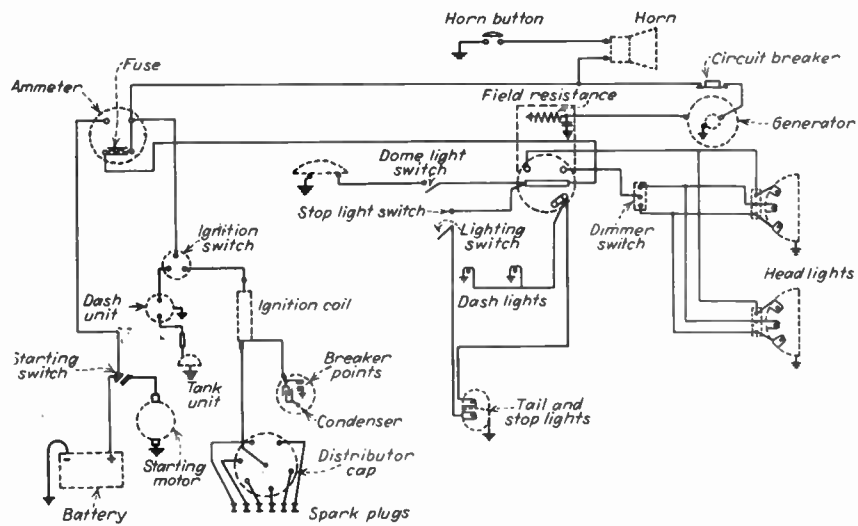 Horn button
Horn
Fuse
Circuit breaker
Ammeter
Field resistance
Generator
Dome light
switch
Stop light switch
Lighting
switch
Dimmer
switch
Ignition
switch
Head lights
Dash
unit
Ignition coil
Dash lights
Starting
switch
Tank
unit
Breaker
points
Condenser
Tail and
stop lights
Starting
motor
Distributor
cap
Battery
Spark plugs